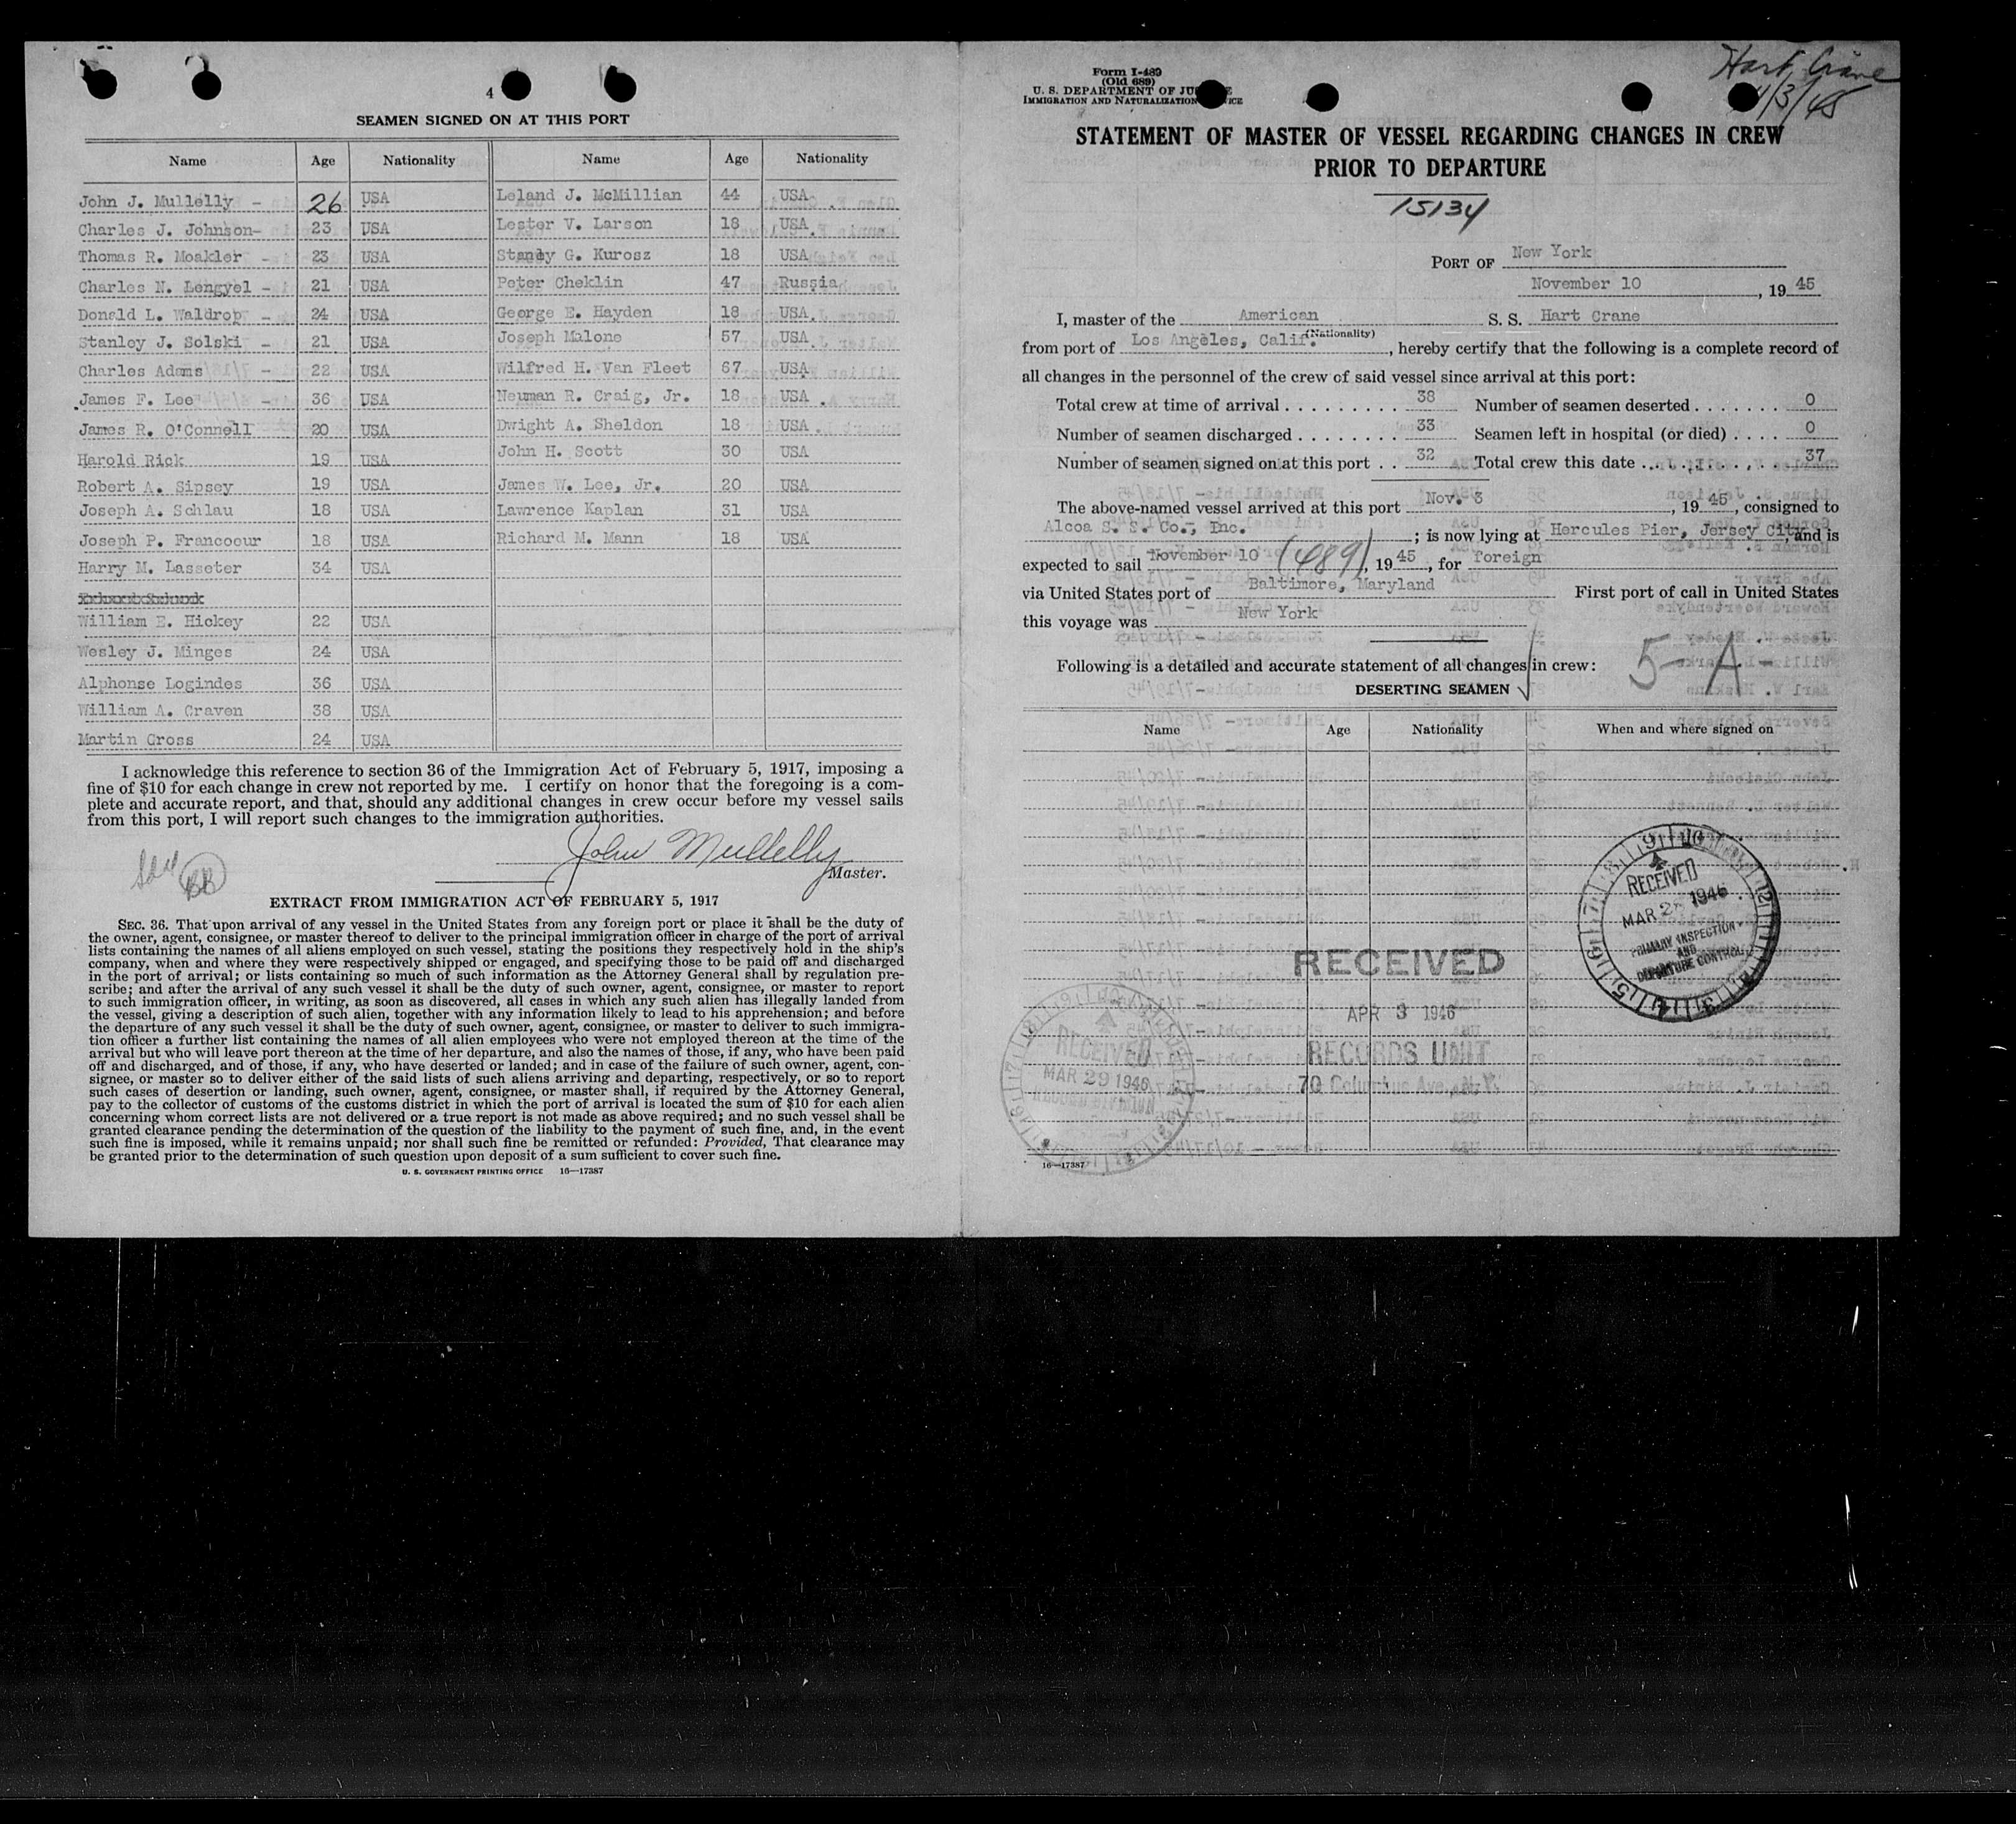 4
SEAMEN SIGNED ON AT THIS PORT
Name Age Nationality Name Age Nationality
John J. Mullelly - 26 USA Leland J. McMillian 44 USA
Charles J. Johnson- 23 USA Lester V. Larson 18 USA
Thomas R. Moakler - 23 USA Stanley G. Kurosz 18 USA
Charles N. Lengyel - 21 USA Peter Cheklin 47 Russia
Donald L. Waldrop - 24 USA George E. Hayden 18 USA
Stanley J. Solski - 21 USA Joseph Malone 57 USA
Charles Adams - 22 USA Wilfred H. Van Fleet 67 USA
James F. Lee - 36 USA Neuman R. Craig, Jr. 18 USA
James R. O'Connell 20 USA Dwight A. Sheldon 18 USA
Harold Rick 19 USA John H. Scott 30 USA
Robert A. Sipsey 19 USA James W. Lee, Jr. 20 USA
Joseph A. Schlau 18 USA Lawrence Kaplan 31 USA
Joseph P. Francoeur 18 USA Richard M. Mann 18 USA
Harry M. Lasseter 34 USA
William E. Hickey 22 USA
Wesley J. Minges 24 USA
Alphonse Logindes 36 USA
William A. Craven 38 USA
Martin Gross 24 USA
I acknowledge this reference to section 36 of the Immigration Act of February 5, 1917, imposing a
fine of $10 for each change in crew not reported by me. I certify on honor that the foregoing is a com-
plete and accurate report, and that, should any additional changes in crew occur before my vessel sails
from this port, I will report such changes to the immigration authorities.
John Mullelly
Master.
BB
EXTRACT FROM IMMIGRATION ACT OF FEBRUARY 5, 1917
SEC. 36. That upon arrival of any vessel in the United States from any foreign port or place it shall be the duty of
the owner, agent, consignee, or master thereof to deliver to the principal immigration officer in charge of the port of arrival
lists containing the names of all aliens employed on such vessel, stating the positions they respectively hold in the ship's
company, when and where they were respectively shipped or engaged, and specifying those to be paid off and discharged
in the port of arrival; or lists containing so much of such information as the Attorney General shall by regulation pre-
scribe; and after the arrival of any such vessel it shall be the duty of such owner, agent, consignee, or master to report
to such immigration officer, in writing, as soon as discovered, all cases in which any such alien has illegally landed from
the vessel, giving a description of such alien, together with any information likely to lead to his apprehension; and before
the departure of any such vessel it shall be the duty of such owner, agent, consignee, or master to deliver to such immigra-
tion officer a further list containing the names of all alien employees who were not employed thereon at the time of the
arrival but who will leave port thereon at the time of her departure, and also the names of those, if any, who have been paid
off and discharged, and of those, if any, who have deserted or landed; and in case of the failure of such owner, agent, con-
signee, or master so to deliver either of the said lists of such aliens arriving and departing, respectively, or so to report
such cases of desertion or landing, such owner, agent, consignee, or master shall, if required by the Attorney General,
pay to the collector of customs of the customs district in which the port of arrival is located the sum of $10 for each alien
concerning whom correct lists are not delivered or a true report is not made as above required; and no such vessel shall be
granted clearance pending the determination of the question of the liability to the payment of such fine, and, in the event
such fine is imposed, while it remains unpaid; nor shall such fine be remitted or refunded: Provided, That clearance may
be granted prior to the determination of such question upon deposit of a sum sufficient to cover such fine.
U. S. GOVERNMENT PRINTING OFFICE 16—17387
Hart Crane
11/3/45
Form I-489
(Old 689)
U. S. DEPARTMENT OF JUSTICE
IMMIGRATION AND NATURALIZATION SERVICE
STATEMENT OF MASTER OF VESSEL REGARDING CHANGES IN CREW
PRIOR TO DEPARTURE
15134
PORT OF New York
November 10, 1945
I, master of the American S. S. Hart Crane
(Nationality)
from port of Los Angeles, Calif., hereby certify that the following is a complete record of
all changes in the personnel of the crew of said vessel since arrival at this port:
Total crew at time of arrival . . . . . . . . . . 38 Number of seamen deserted . . . . . . . 0
Number of seamen discharged . . . . . . . . 33 Seamen left in hospital (or died) . . . . 0
Number of seamen signed on at this port . . 32 Total crew this date . . . . . . . . . . . . 37
The above-named vessel arrived at this port Nov. 3, 1945, consigned to
Alcoa S. S. Co., Inc. ; is now lying at Hercules Pier, Jersey City and is
expected to sail November 10 (489), 1945, for foreign
via United States port of Baltimore, Maryland First port of call in United States
this voyage was New York
Following is a detailed and accurate statement of all changes in crew: 5-A-
DESERTING SEAMEN
Name Age Nationality When and where signed on
RECEIVED
MAR 2 1946
PRIMARY INSPECTION
AND
DEPARTURE CONTROL
RECEIVED
APR 3 1946
RECORDS UNIT
70 Columbus Ave., N.Y.
RECEIVED
MAR 29 1946
16—17387